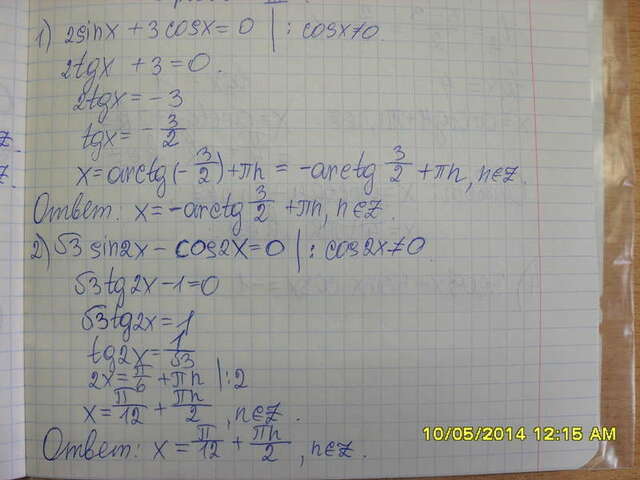 1) 2sinx + 3cosx = 0 | : cosx≠0.
2tgx + 3 = 0.
2tgx = -3
tgx = -3/2
x = arctg(-3/2) + πn = -arctg 3/2 + πn, n∈Z.
Ответ: x = -arctg 3/2 + πn, n∈Z.
2) √3 sin2x - cos2x = 0 | : cos2x≠0.
√3tg2x - 1 = 0
√3tg2x = 1
tg2x = 1/√3
2x = π/6 + πn | : 2
x = π/12 + πn/2, n∈Z.
Ответ: x = π/12 + πn/2, n∈Z.
10/05/2014 12:15 AM